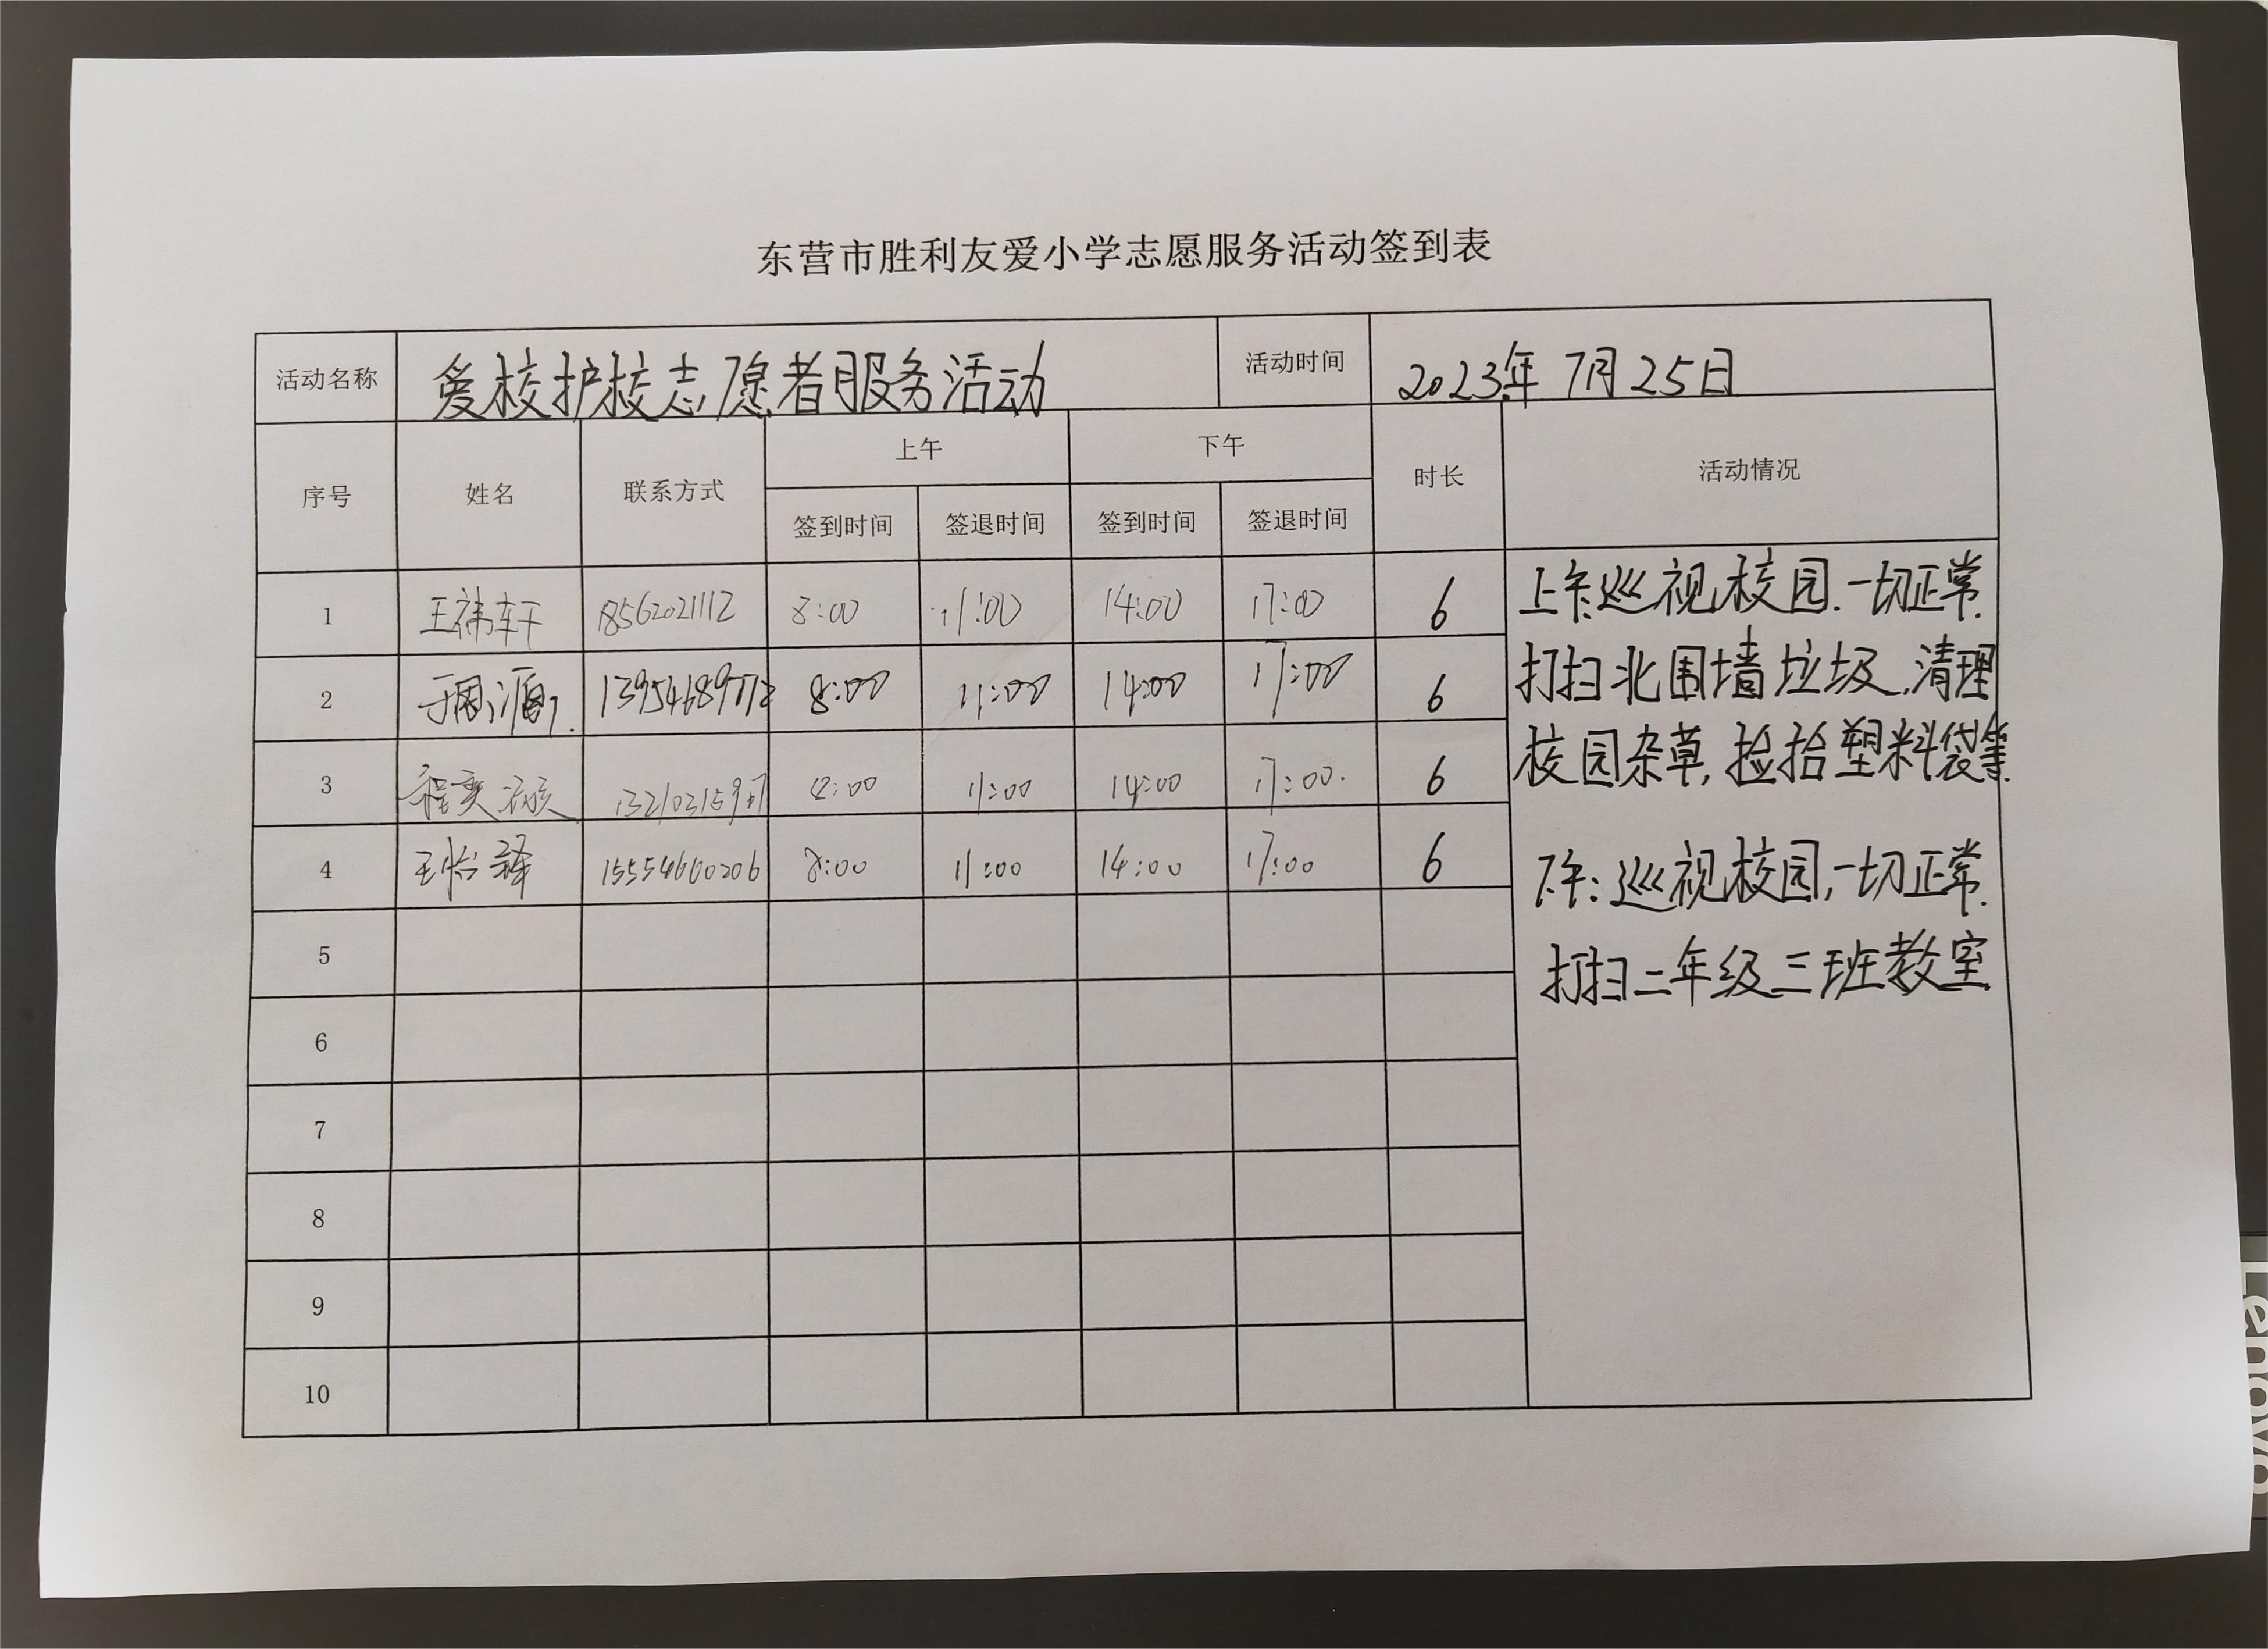 东营市胜利友爱小学志愿服务活动签到表
活动名称 爱校护校志愿者服务活动 活动时间 2023年7月25日
序号 姓名 联系方式 上午 下午 时长 活动情况
签到时间 签退时间 签到时间 签退时间
1 王祎轩 18562021112 8:00 11:00 14:00 17:00 6
2 8:00 11:00 14:00 17:00 6
3 程奕 8:00 11:00 14:00 17:00. 6
4 王怡译 15554600206 8:00 11:00 14:00 17:00 6
5
6
7
8
9
10
上午巡视校园.一切正常.
打扫北围墙垃圾,清理
校园杂草,捡拾塑料袋等.
下午:巡视校园,一切正常.
打扫二年级三班教室
Lenovo